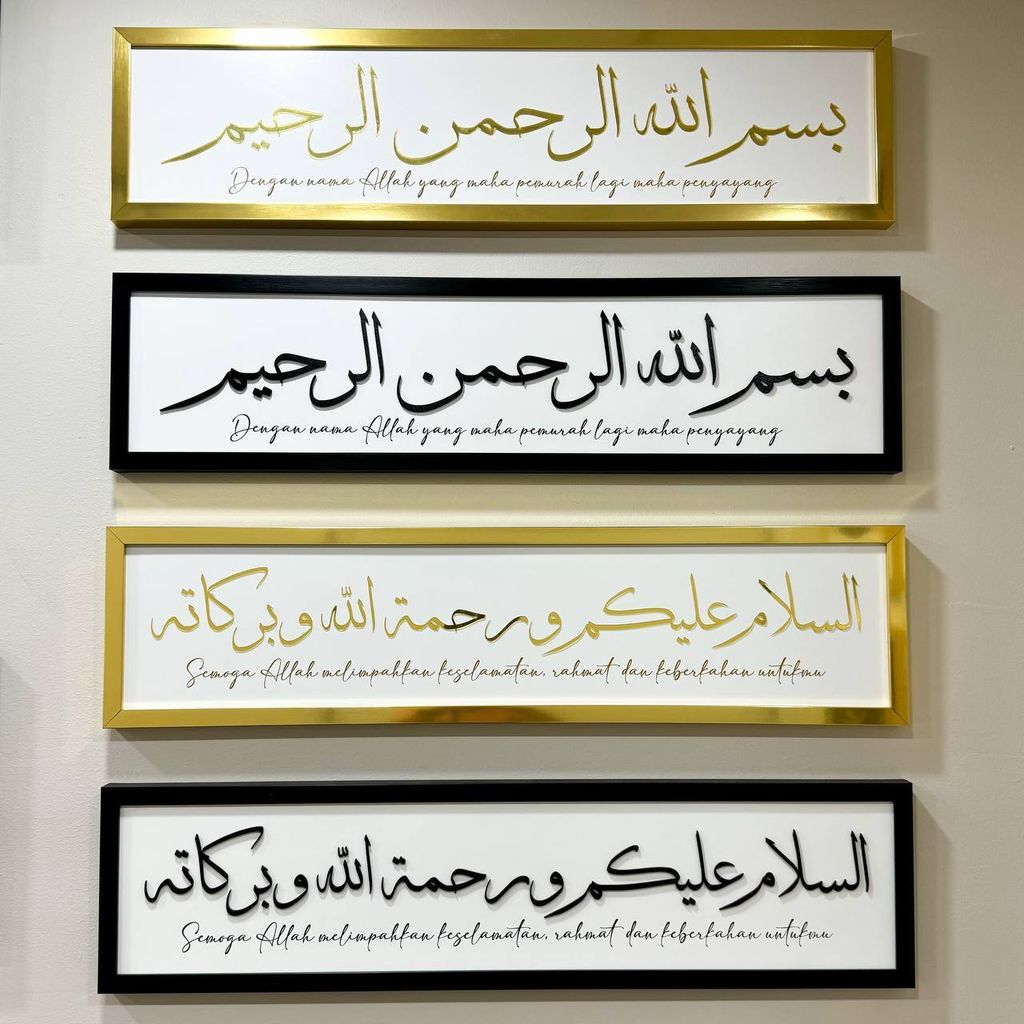 بسم الله الرحمن الرحيم
Dengan nama Allah yang maha pemurah lagi maha penyayang
بسم الله الرحمن الرحيم
Dengan nama Allah yang maha pemurah lagi maha penyayang
السلام عليكم ورحمة الله وبركاته
Semoga Allah melimpahkan keselamatan, rahmat dan keberkahan untukmu
السلام عليكم ورحمة الله وبركاته
Semoga Allah melimpahkan keselamatan, rahmat dan keberkahan untukmu